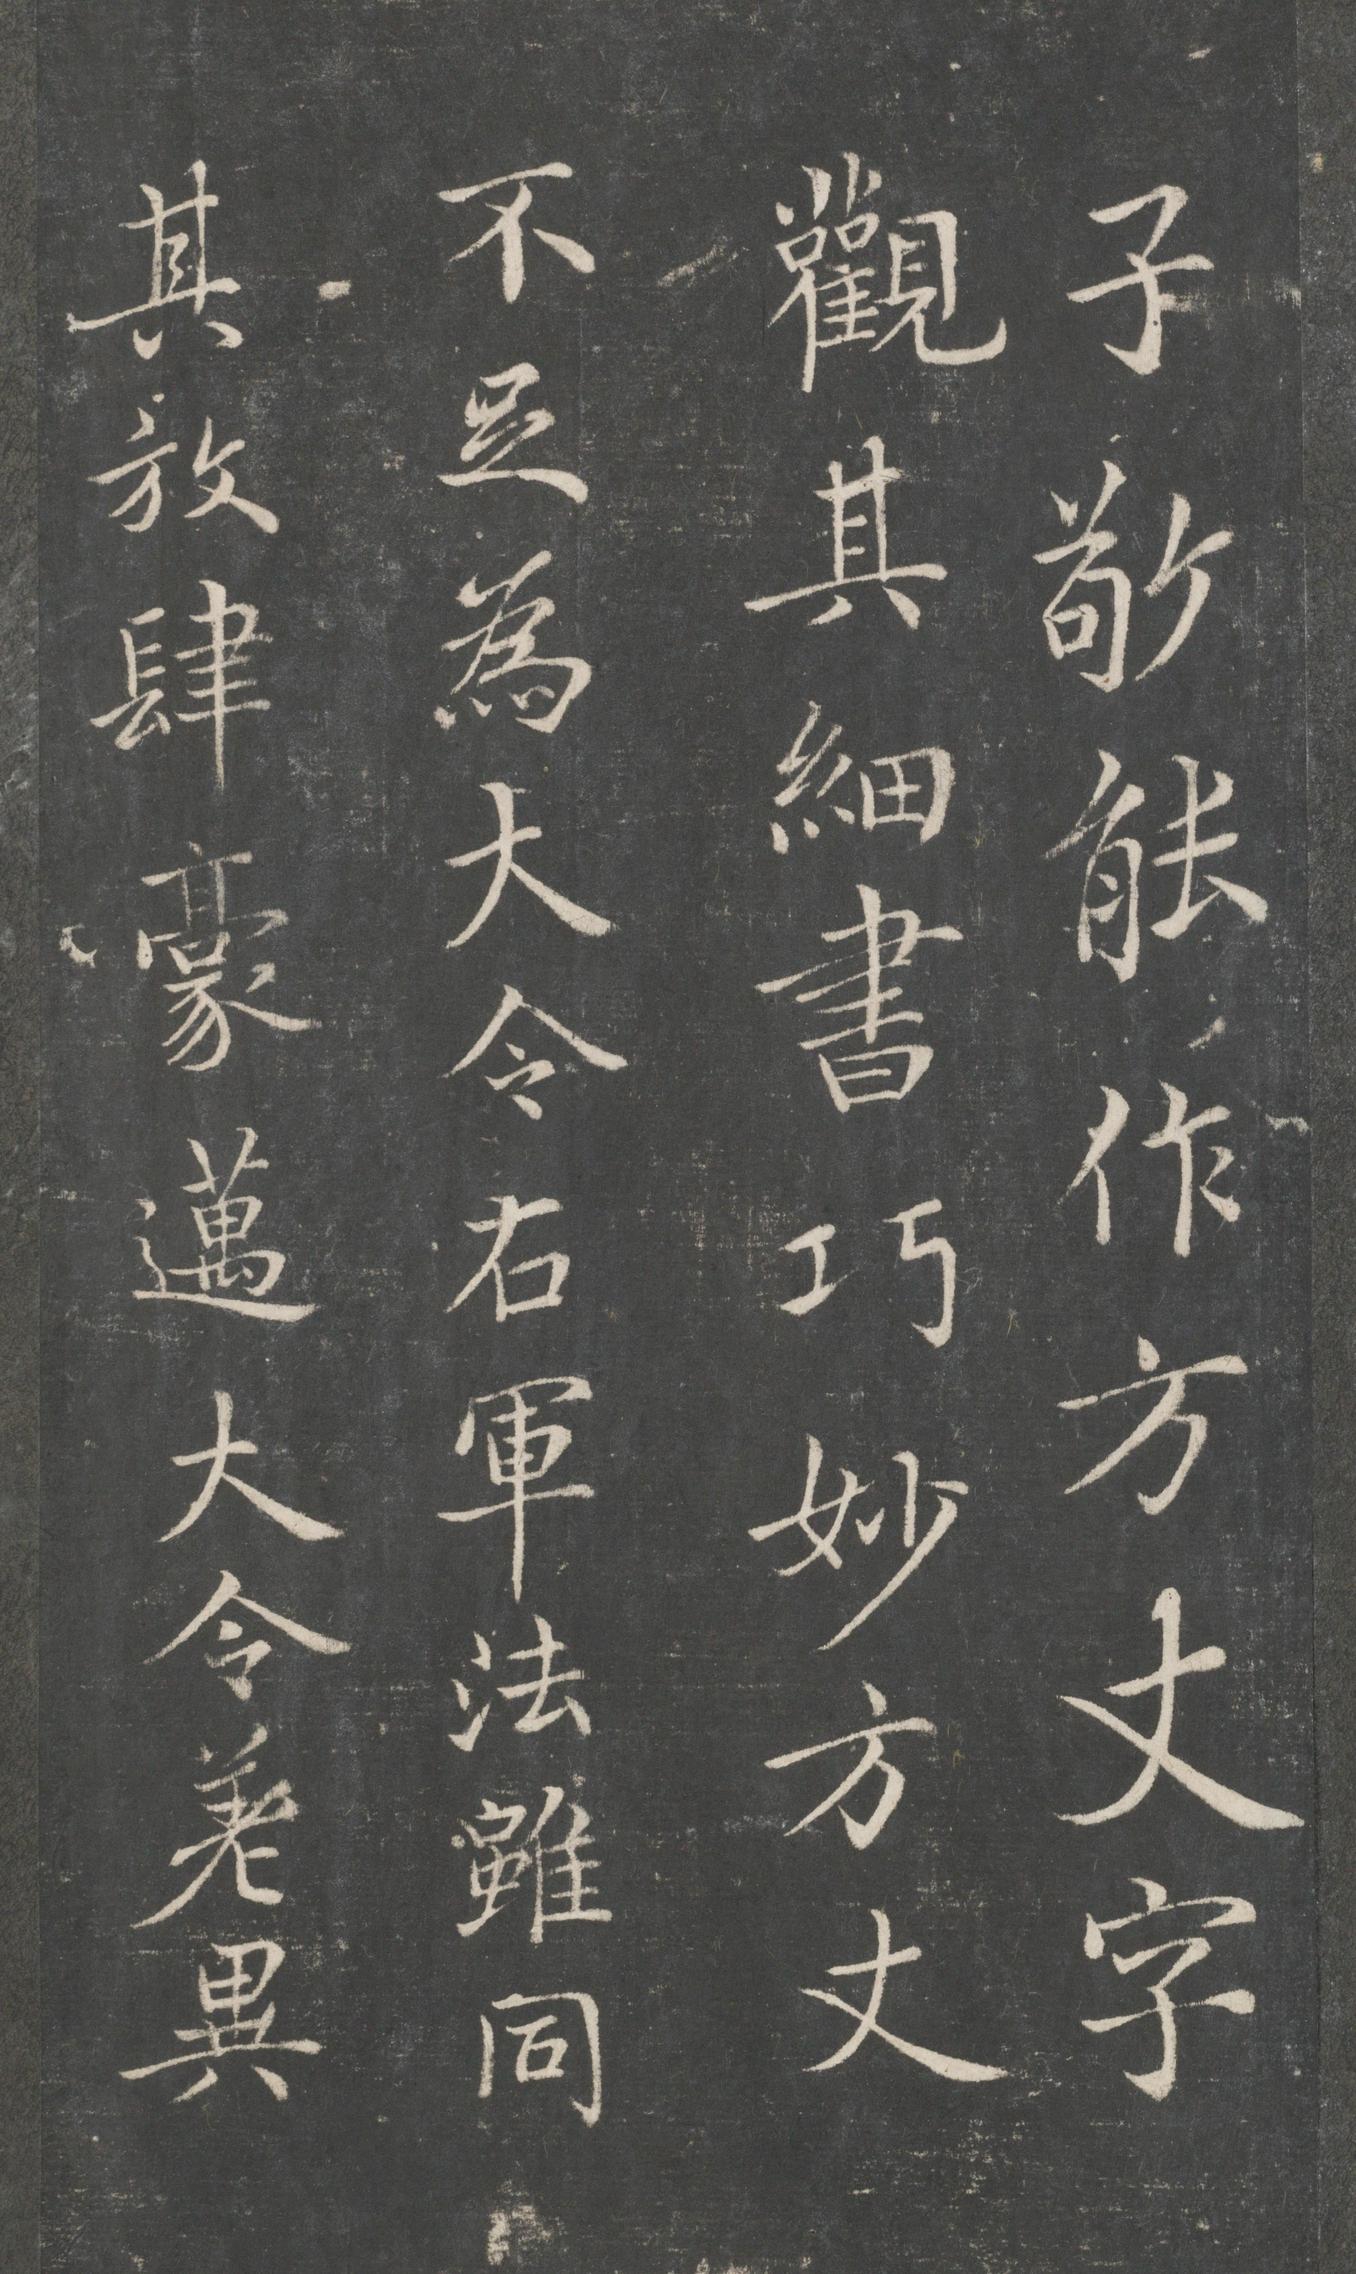 子敬能作方丈字
觀其細書巧妙方丈
不足為大令右軍法雖同
其放肆豪邁大令差異